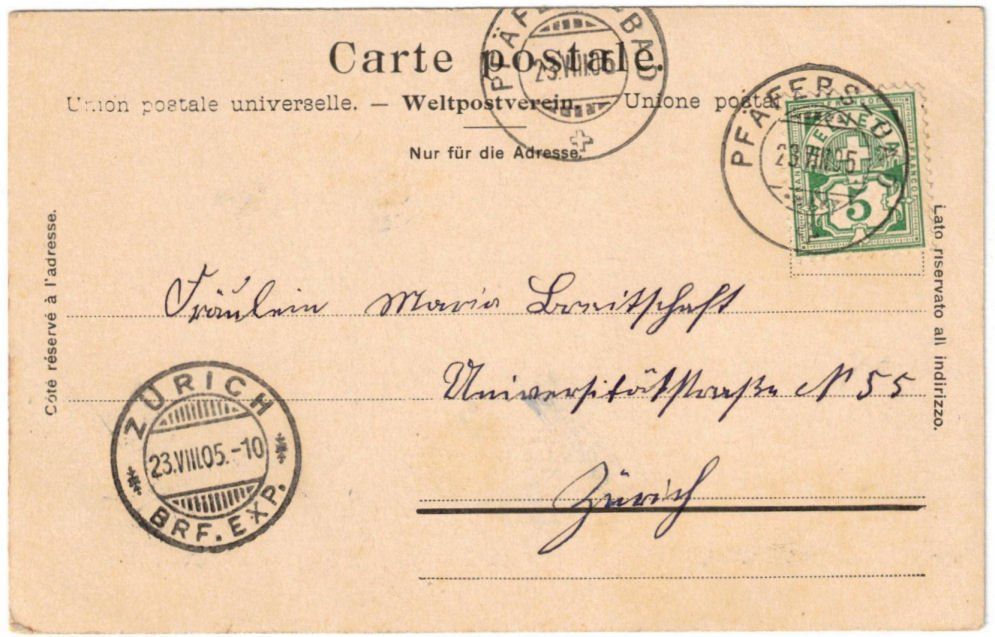 Carte postale.
Union postale universelle. — Weltpostverein. Unione postal
Nur für die Adresse.
PFÄFERS-BAD
23.VIII.05
PFÄFERS-BAD
23.VIII.05
HELVETIA
FRANCO
5
Côté réservé à l'adresse.
Lato riservato all indirizzo.
Fräulein Maria Breitschaft
Universitätstraße N 55
Zürich
ZÜRICH
23.VIII.05.-10
BRF. EXP.